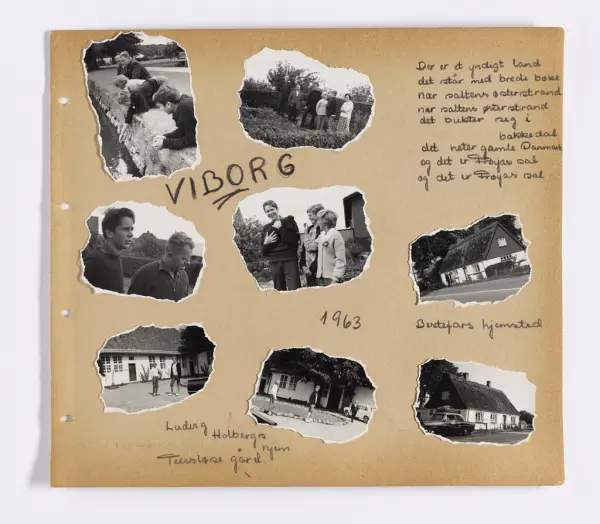 Der er et yndigt land
det står med brede bøke
nær saltens østerstrand
nær saltens østerstrand
det bukter seg i
bakkedal
det heter gamle Danmark
og det er Frøyas sal
og det er Frøyas sal
VIBORG
1963
Bestefars hjemsted
Ludvig Holbergs
hjem
Tersløse gård.